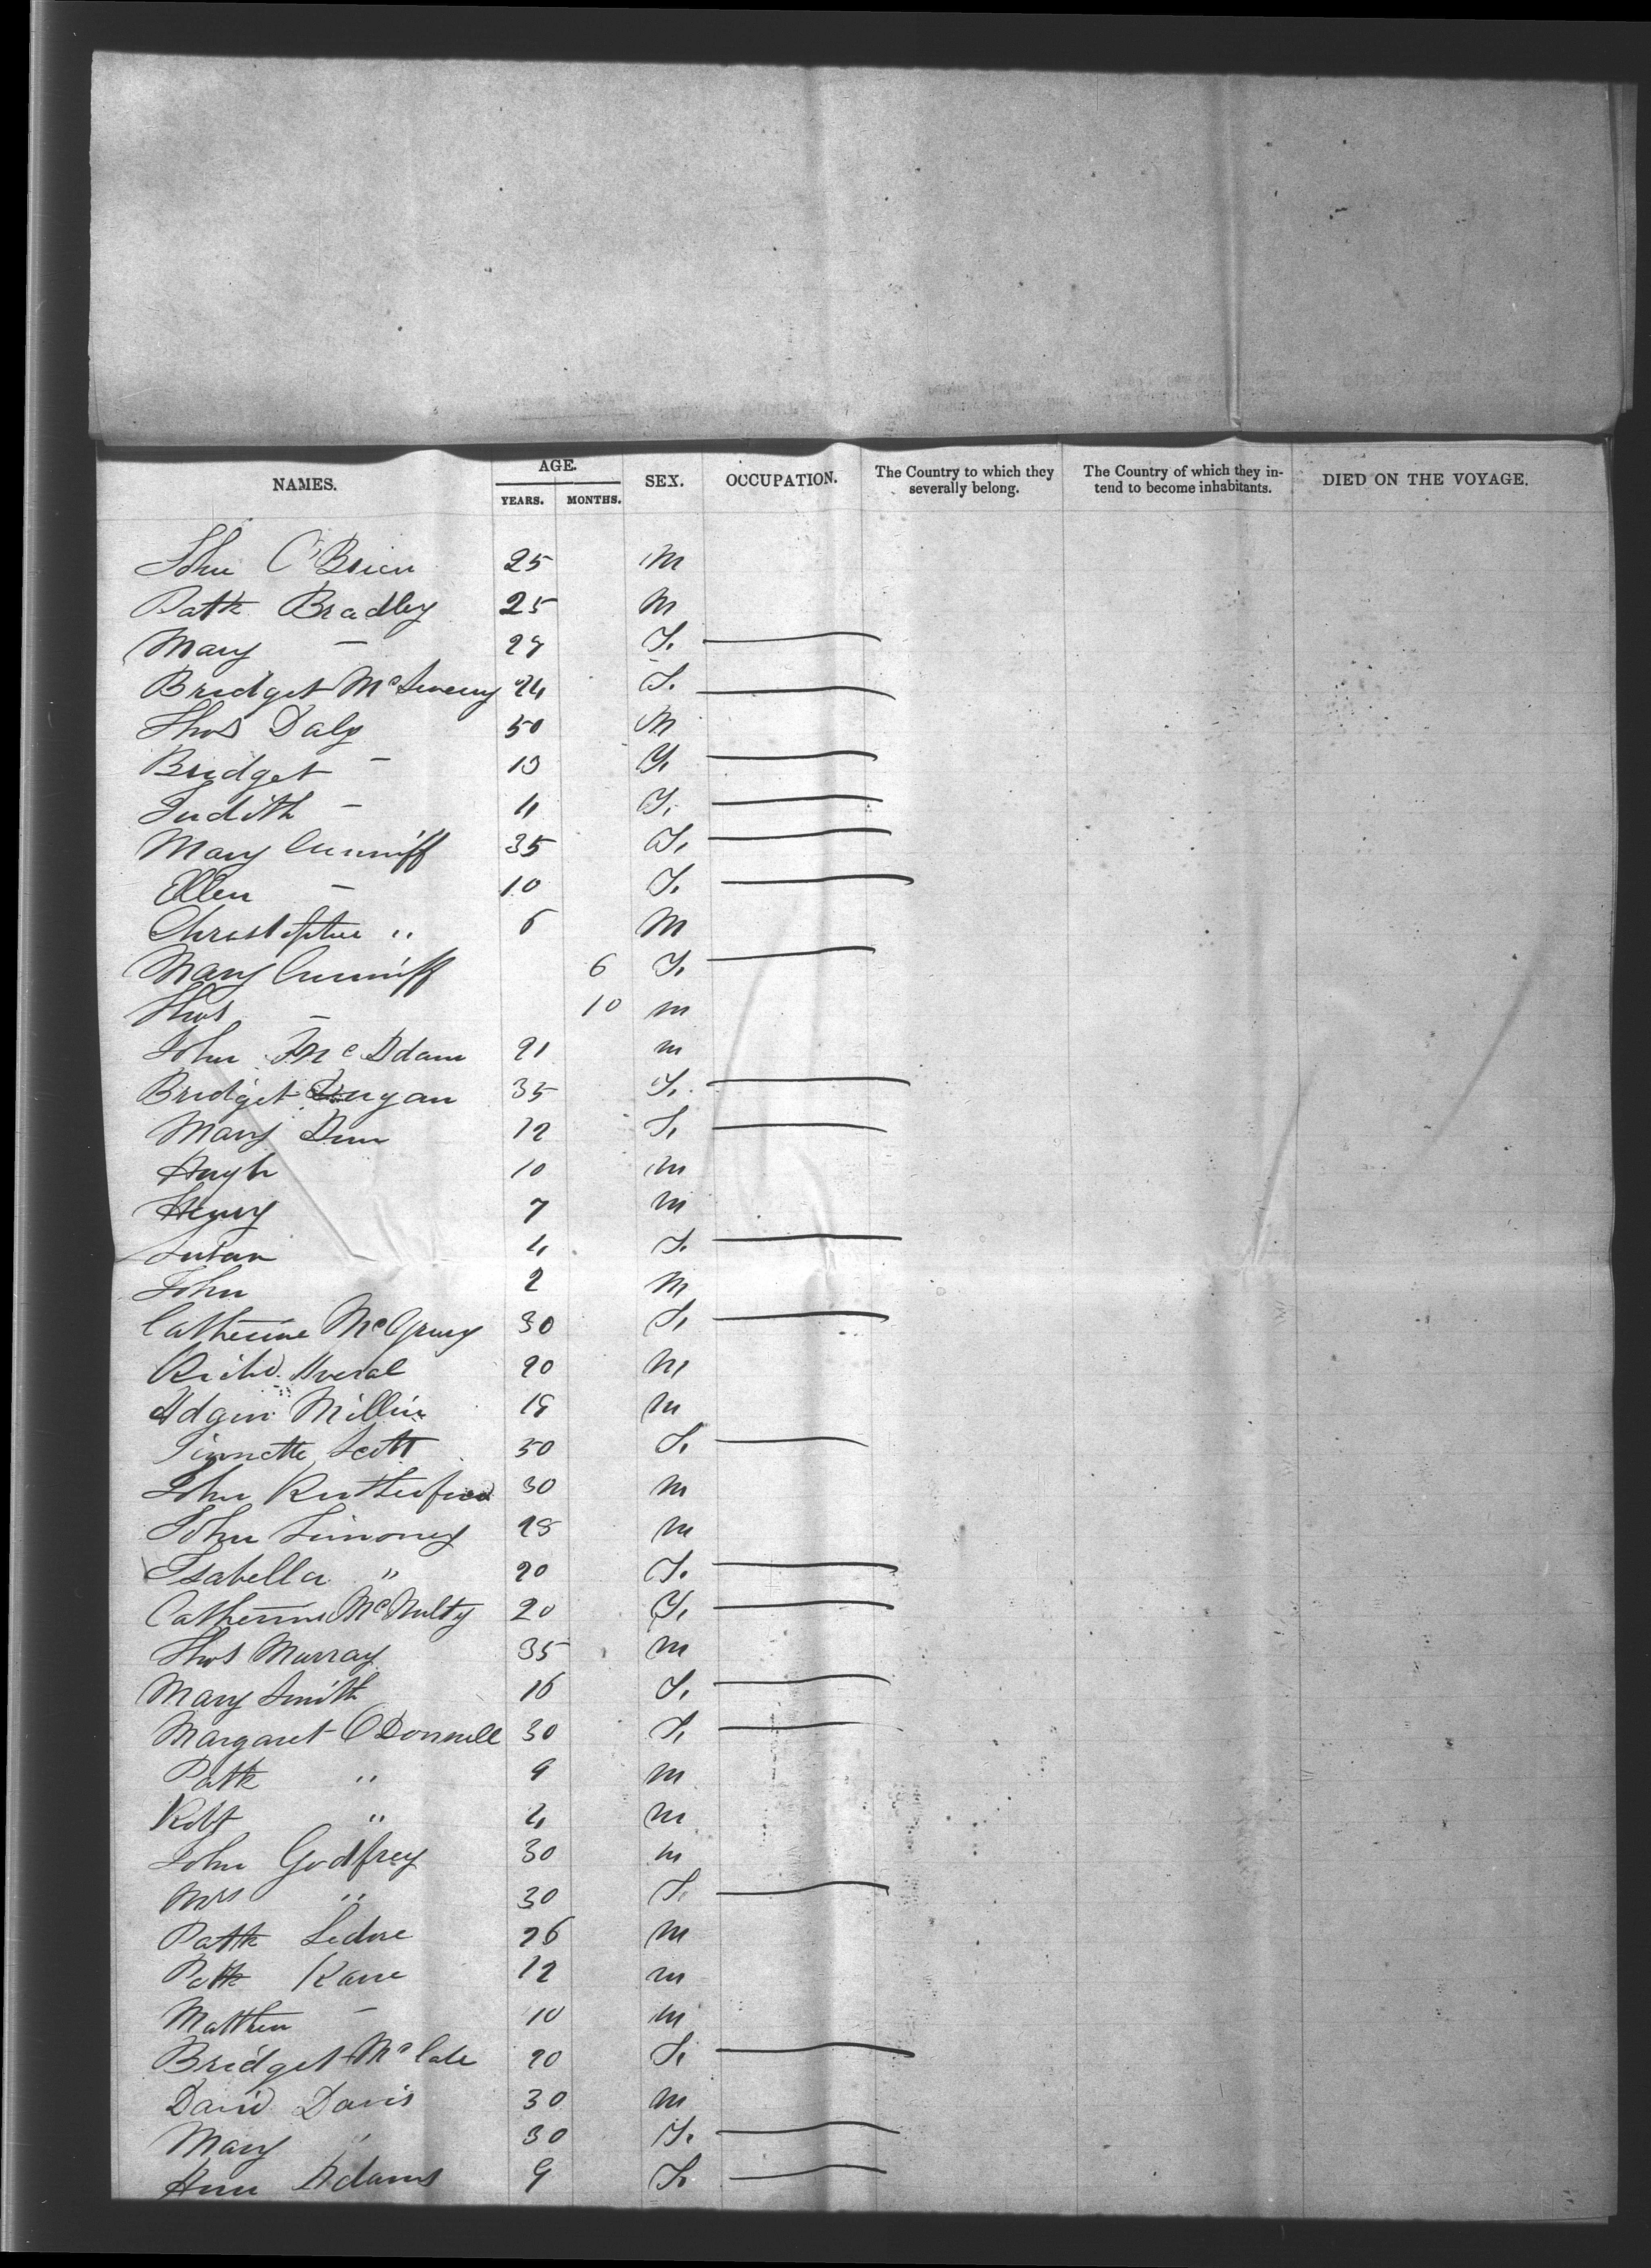 NAMES. AGE. YEARS. MONTHS. SEX. OCCUPATION. The Country to which they severally belong. The Country of which they intend to become inhabitants. DIED ON THE VOYAGE.
John O'Brien 25 M
Patk Bradley 25 M
Mary — 27 F. —
Bridget McSweeny 24 F. —
Thos Daly 50 M
Bridget — 13 F. —
Judith — 4 F. —
Mary Cunniff 35 F. —
Ellen — 10 F. —
Christopher " 6 M
Mary Cunniff 6 F. —
Thos — 10 m
John McAdam 21 m
Bridget Dugan 35 F. —
Mary Dun 12 F. —
Hugh 10 m
Henry 7 m
Susan 4 F. —
John 2 M
Catherine 30 F. —
Richd. 20 M
Millin 18 m
Scott 50 F. —
John Rutherford 30 m
John Simoney 28 m
Isabella " 20 F. —
Catherine McNulty 20 F. —
Thos Murray 35 m
Mary Smith 16 F. —
Margaret O'Donnell 30 F. —
Patk " 9 m
Robt " 4 m
John Godfrey 30 m
Mrs " 30 F. —
Patk 26 m
Patk Kane 12 m
Matthew — 10 m
Bridget McCabe 20 F. —
David Davis 30 m
Mary " 30 F. —
Ann Adams 9 F. —